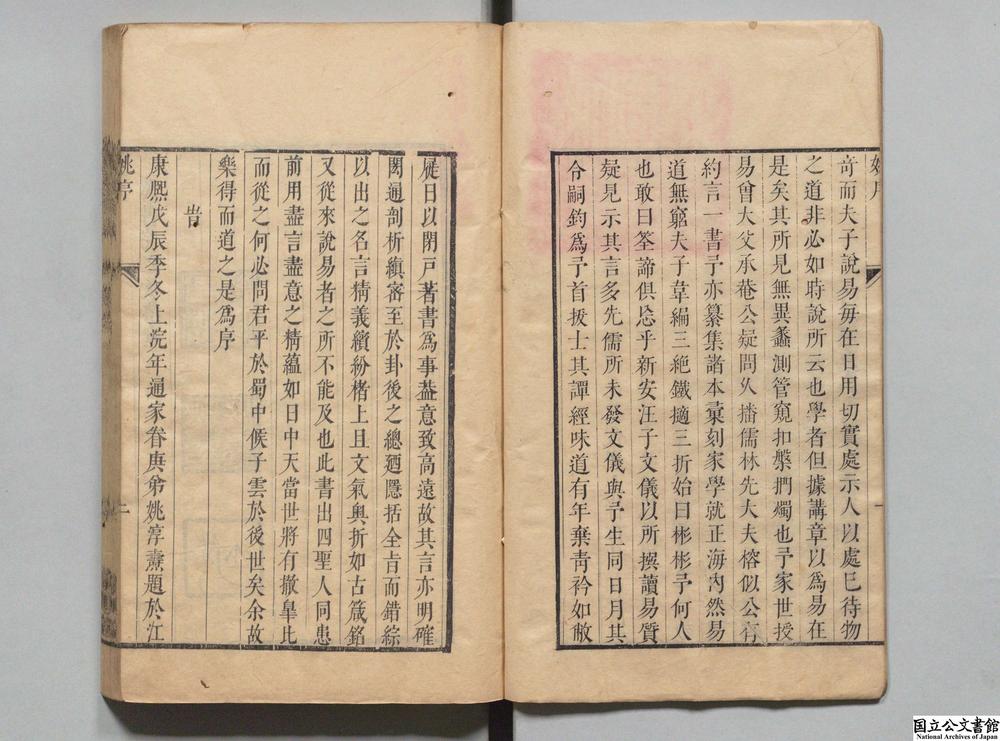 奇而夫子說易每在日用切實處示人以處已待物
之道非必如時說所云也學者但據講章以爲易在
是矣其所見無異蠡測管窺扣槃捫燭也予家世授
易曾大父承菴公疑問久播儒林先大夫榕似公有
約言一書予亦纂集諸本彚刻家學就正海內然易
道無窮夫子韋編三絶鐵擿三折始曰彬彬予何人
也敢曰筌諦俱忘乎新安汪子文儀以所撰讀易質
疑見示其言多先儒所未發文儀與予生同日月其
令嗣鈞爲予首拔士其譚經味道有年棄靑衿如敝
屣日以閉戸著書爲事葢意致高遠故其言亦明確
閎通剖析縝審至於卦後之總廽隱括全旨而錯綜
以出之名言精義繽紛楮上且文氣奧折如古箴銘
又從來說易者之所不能及也此書出四聖人同患
前用盡言盡意之精蘊如日中天當世將有撤臯比
而從之何必問君平於蜀中候子雲於後世矣余故
樂得而道之是爲序
旹
康熈戊辰季冬上浣年通家眷庚弟姚淳燾題於江
姚序
二
国立公文書館
National Archives of Japan